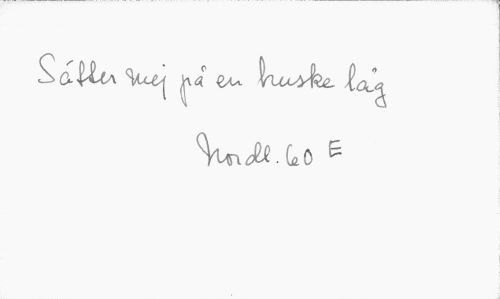 Sätter mej på en huske låg
Nordl. 60 E